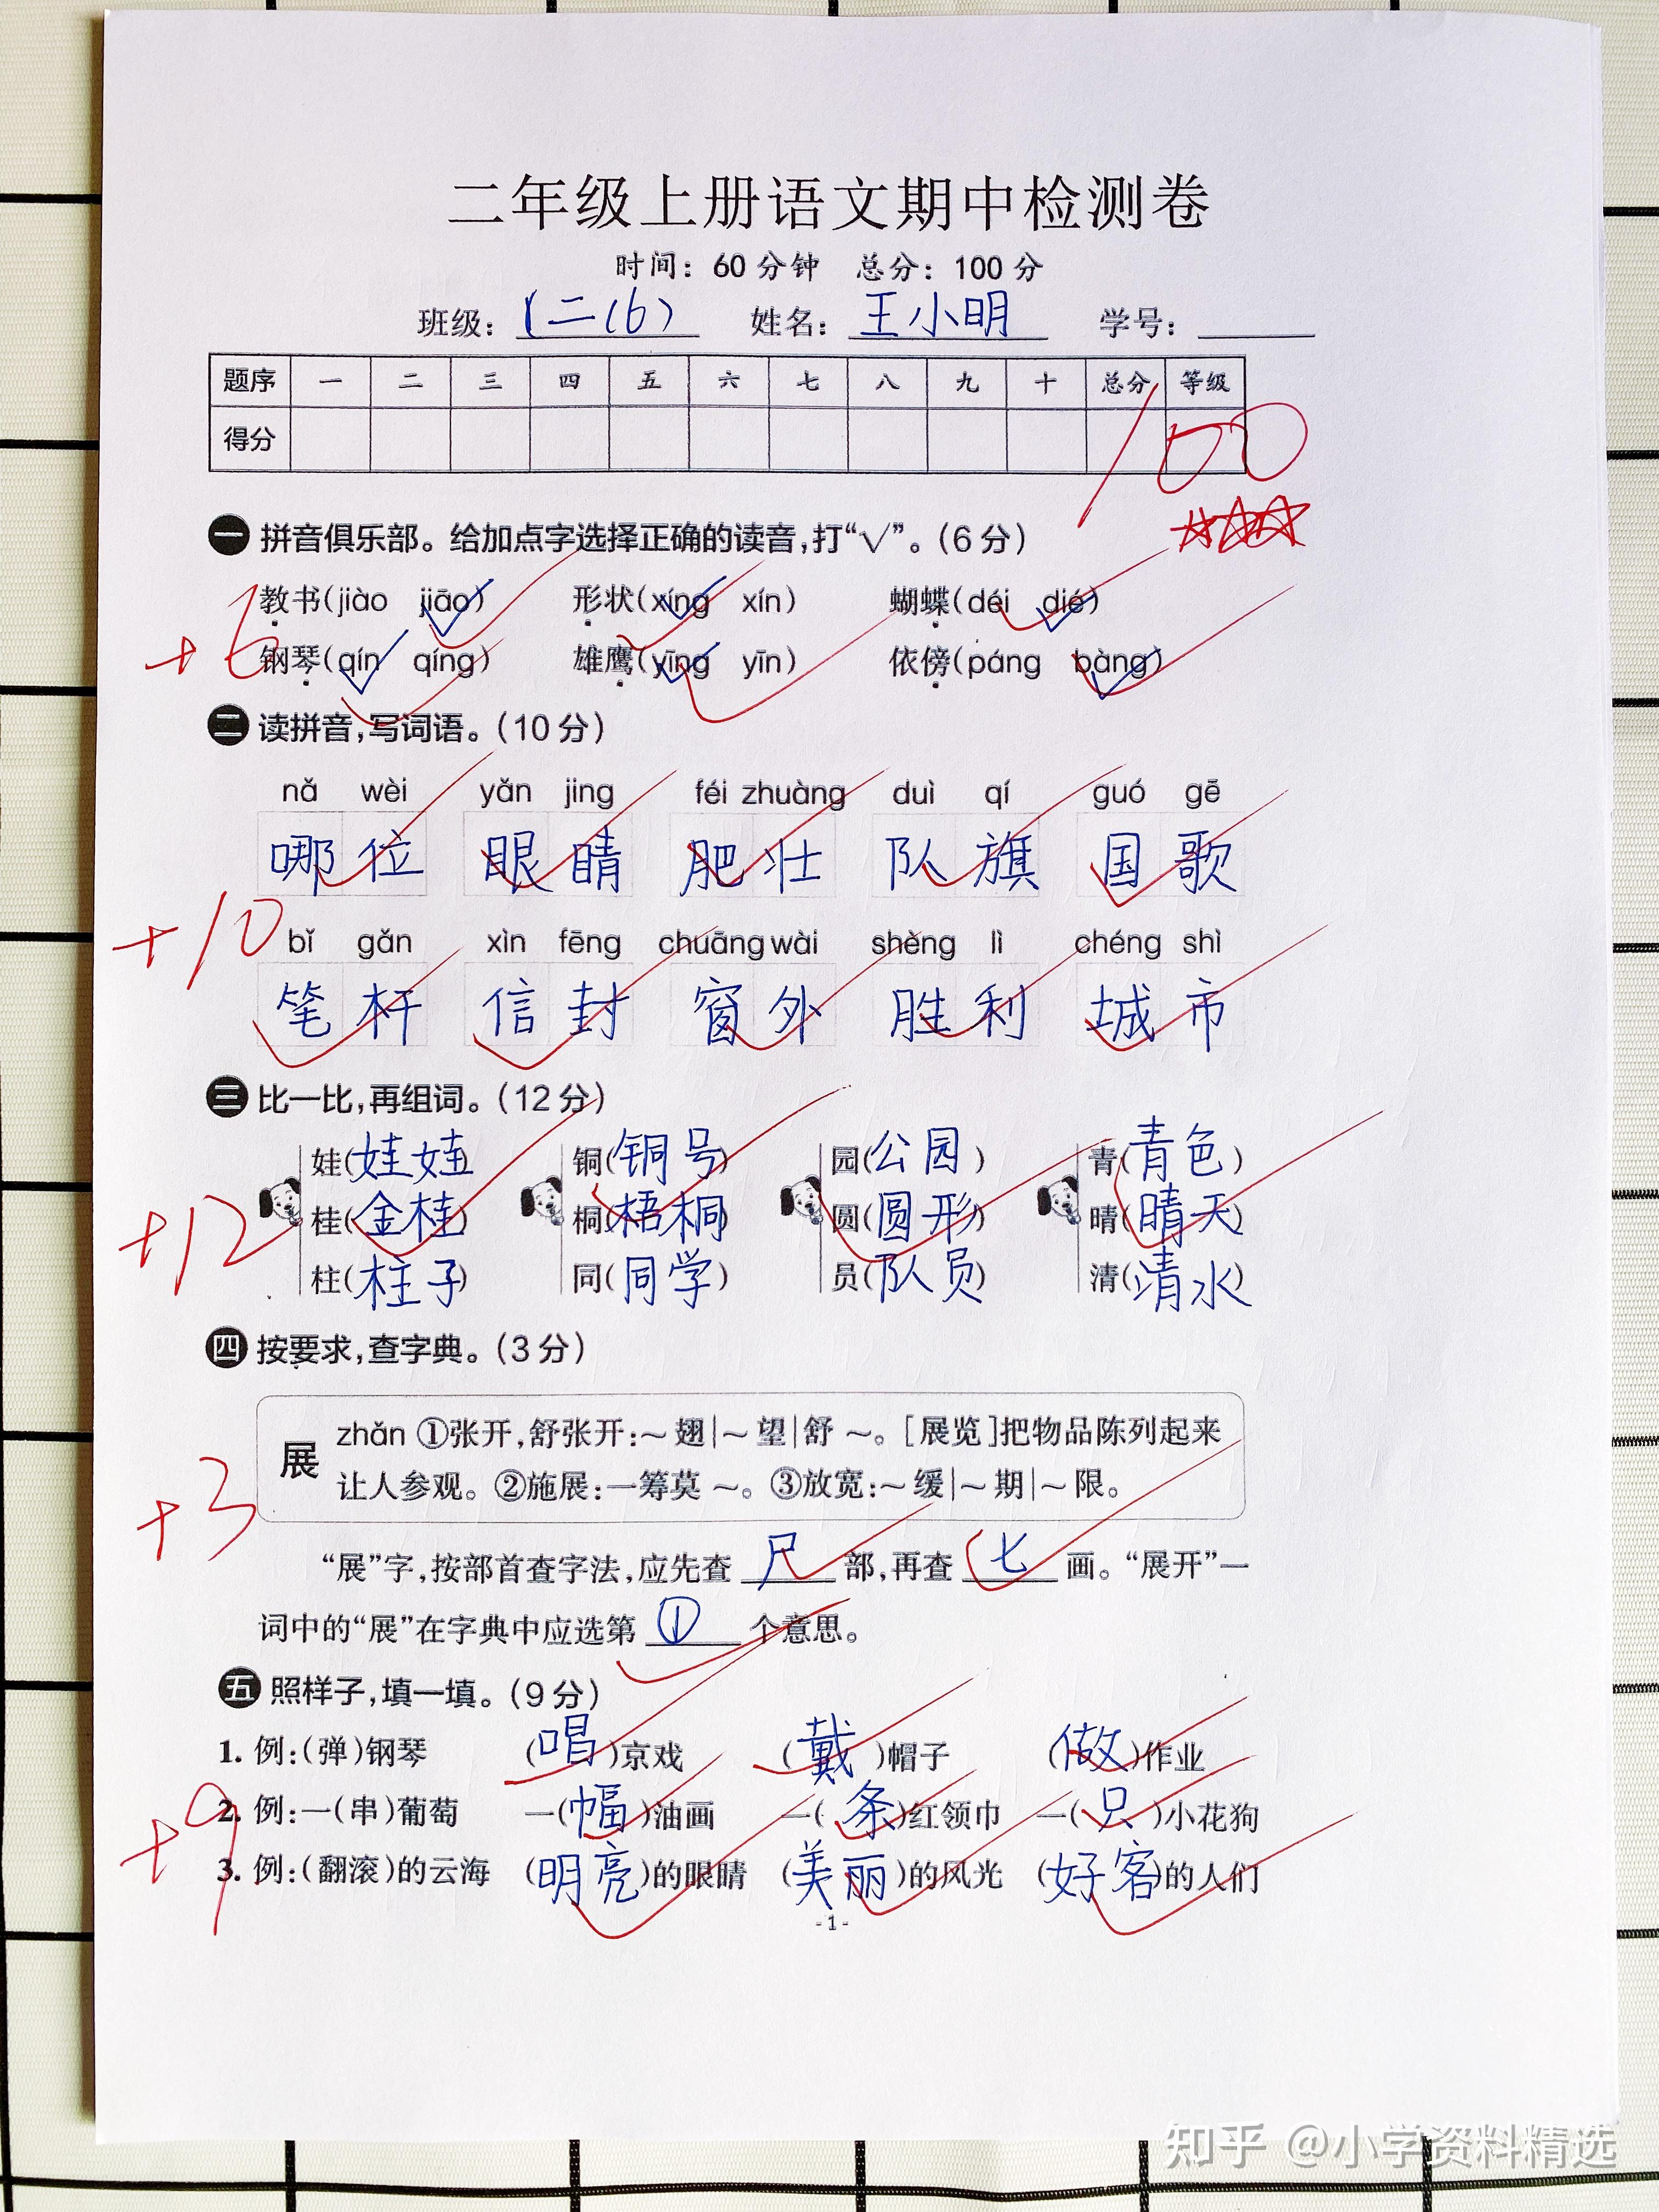 二年级上册语文期中检测卷
时间：60分钟 总分：100分
班级：(二(6) 姓名：王小明 学号：
题序 一 二 三 四 五 六 七 八 九 十 总分 等级
得分 100
一 拼音俱乐部。给加点字选择正确的读音，打“√”。（6分）
教书(jiào jiāo√) 形状(xíng√ xín) 蝴蝶(déi dié√)
+6 钢琴(qín√ qíng) 雄鹰(yīng√ yīn) 依傍(páng bàng√)
二 读拼音，写词语。（10分）
nǎ wèi yǎn jing féi zhuàng duì qí guó gē
哪位 眼睛 肥壮 队旗 国歌
+10 bǐ gǎn xìn fēng chuāng wài shèng lì chéng shì
笔杆 信封 窗外 胜利 城市
三 比一比，再组词。（12分）
娃(娃娃) 铜(铜号) 园(公园) 青(青色)
+12 桂(金桂) 桐(梧桐) 圆(圆形) 晴(晴天)
柱(柱子) 同(同学) 员(队员) 清(清水)
四 按要求，查字典。（3分）
展 zhǎn ①张开，舒张开：～翅|～望|舒～。[展览]把物品陈列起来
让人参观。②施展：一筹莫～。③放宽：～缓|～期|～限。
+3
“展”字，按部首查字法，应先查 尸 部，再查 七 画。“展开”一
词中的“展”在字典中应选第 ① 个意思。
五 照样子，填一填。（9分）
1. 例：(弹)钢琴 (唱)京戏 (戴)帽子 (做)作业
2. 例：一(串)葡萄 一(幅)油画 一(条)红领巾 一(只)小花狗
+9
3. 例：(翻滚)的云海 (明亮)的眼睛 (美丽)的风光 (好客)的人们
-1-
知乎 @小学资料精选